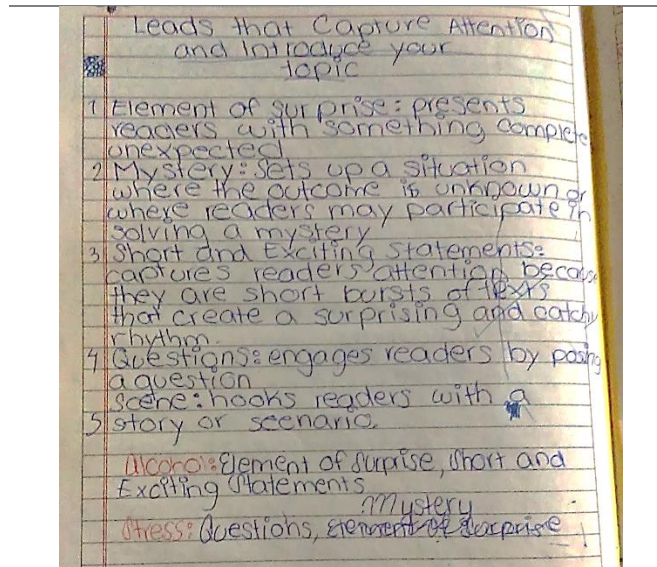 Leads that Capture Attention
and Introduce your
topic
1 Element of surprise: presents
readers with something complete
unexpected
2 Mystery: sets up a situation
where the outcome is unknown or
where readers may participate in
solving a mystery
3 Short and Exciting Statements:
captures readers attention because
they are short bursts of texts
that create a surprising and catchy
rhythm.
4 Questions: engages readers by posing
a question
Scene: hooks readers with a
5 story or scenario.
Alcohol: Element of Surprise, Short and
Exciting Statements
Mystery
Stress: Questions, Element of Surprise